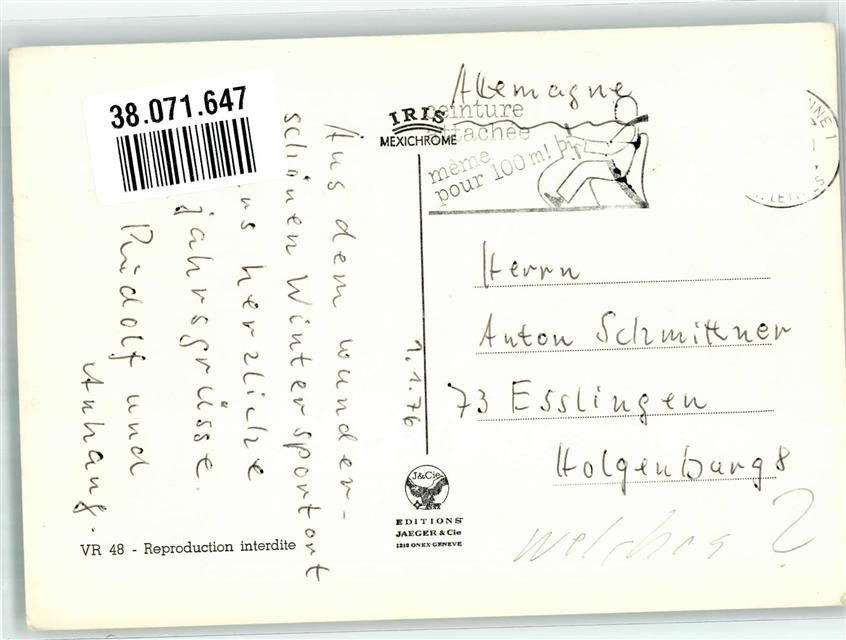 38.071.647
Aus dem wunder-
schönen Wintersportort
herzliche
jahrsgrüsse.
Rudolf und
Anhang.
VR 48 - Reproduction interdite
IRIS
MEXICHROME
1.76
J&Cie
EDITIONS
JAEGER & Cie
1213 ONEX-GENEVE
Allemagne
peinture
attachée
même
pour 100 m!
Herrn
Anton Schmittner
73 Esslingen
8
welches?